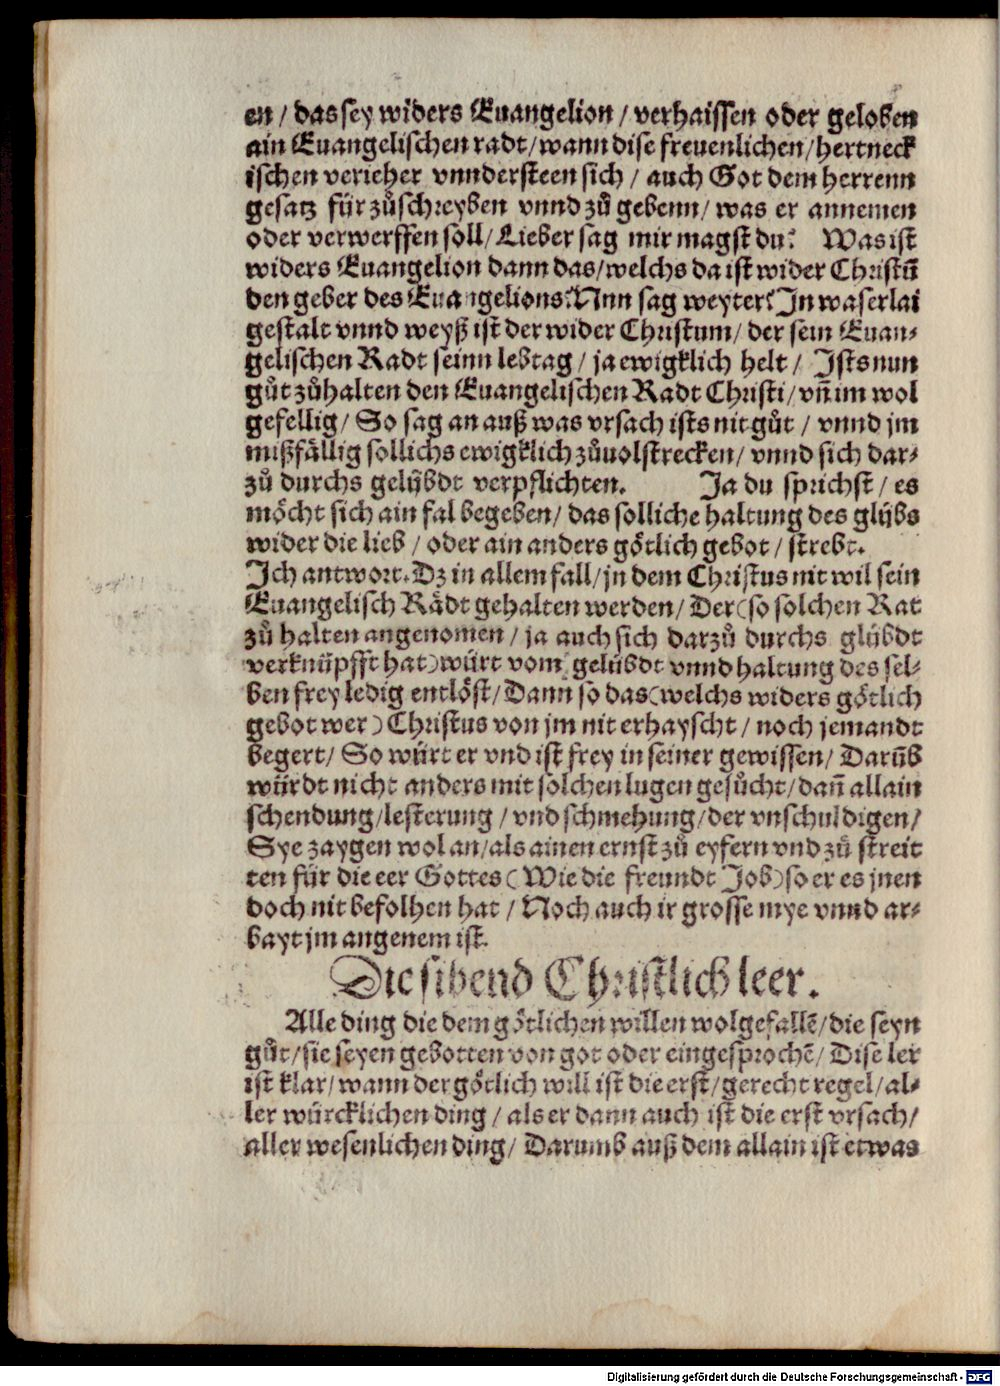 en / das sey widers Euangelion / verhaissen oder geloben
ain Euangelischen radt / wann dise freuenlichen / hertneck
ischen verieher vnndersteen sich / auch Got dem herrenn
gesatz für zůschreyben vnnd zů gebenn / was er annemen
oder verwerffen soll / Lieber sag mir magst du? Was ist
widers Euangelion dann das / welchs da ist wider Christū
den geber des Euangelions? Nun sag weyter? In waserlai
gestalt vnnd weyß ist der wider Christum / der sein Euan⸗
gelischen Radt seinn lebtag / ja ewigklich helt / Ists nun
gůt zůhalten den Euangelischen Radt Christi / vn̄ im wol
gefellig / So sag an auß was vrsach ists nit gůt / vnnd jm
mißfällig sollichs ewigklich zůuolstrecken / vnnd sich dar⸗
zů durchs gelübdt verpflichten. Ja du sprichst / es
möcht sich ain fal begeben / das solliche haltung des glübs
wider die lieb / oder ain anders götlich gebot / strebt.
Ich antwort. Dz in allem fall / jn dem Christus nit wil sein
Euangelisch Rädt gehalten werden / Der (so solchen Rat
zů halten angenomen / ja auch sich darzů durchs glübdt
verknüpfft hat) würt vom gelübdt vnnd haltung des sel⸗
ben frey ledig entlöst / Dann so das (welchs widers götlich
gebot wer) Christus von jm nit erhayscht / noch jemandt
begert / So würt er vnd ist frey in seiner gewissen / Darūb
würdt nicht anders mit solchen lugen gesůcht / dan̄ allain
schendung / lesterung / vnd schmehung / der vnschuldigen /
Sye zaygen wol an / als ainen ernst zů eyfern vnd zů streit
ten für die eer Gottes (Wie die freundt Job) so er es jnen
doch nit befolhen hat / Noch auch ir grosse mye vnnd ar⸗
bayt jm angenem ist.
Die sibend Christlich leer.
Alle ding die dem götlichen willen wolgefallē / die seyn
gůt / sie seyen gebotten von got oder eingesprochē / Dise ler
ist klar / wann der götlich will ist die erst / gerecht regel / al⸗
ler würcklichen ding / als er dann auch ist die erst vrsach /
aller wesenlichen ding / Darumb auß dem allain ist etwas
Digitalisierung gefördert durch die Deutsche Forschungsgemeinschaft - DFG